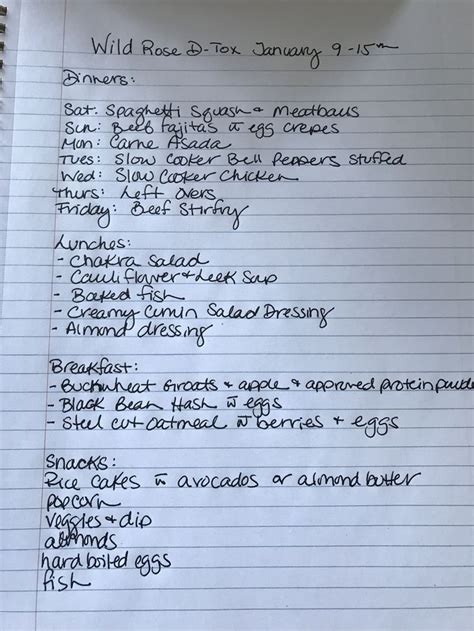 Wild Rose D-Tox January 9-15th
Dinners:
Sat: Spaghetti Squash + meatballs
Sun: Beef Fajitas w̄ egg crepes
Mon: Carne Asada
Tues: Slow Cooker Bell Peppers Stuffed
Wed: Slow Cooker Chicken
Thurs: Left overs
Friday: Beef Stirfry
Lunches:
- Chakra Salad
- Cauliflower + Leek Soup
- Baked fish
- Creamy Cumin Salad Dressing
- Almond dressing
Breakfast:
- Buckwheat Groats + apple + approved protein powde
- Black Bean Hash w̄ eggs
- Steel cut oatmeal w̄ berries + eggs
Snacks:
Rice cakes w̄ avocados or almond butter
popcorn
veggies + dip
almonds
hard boiled eggs
fish